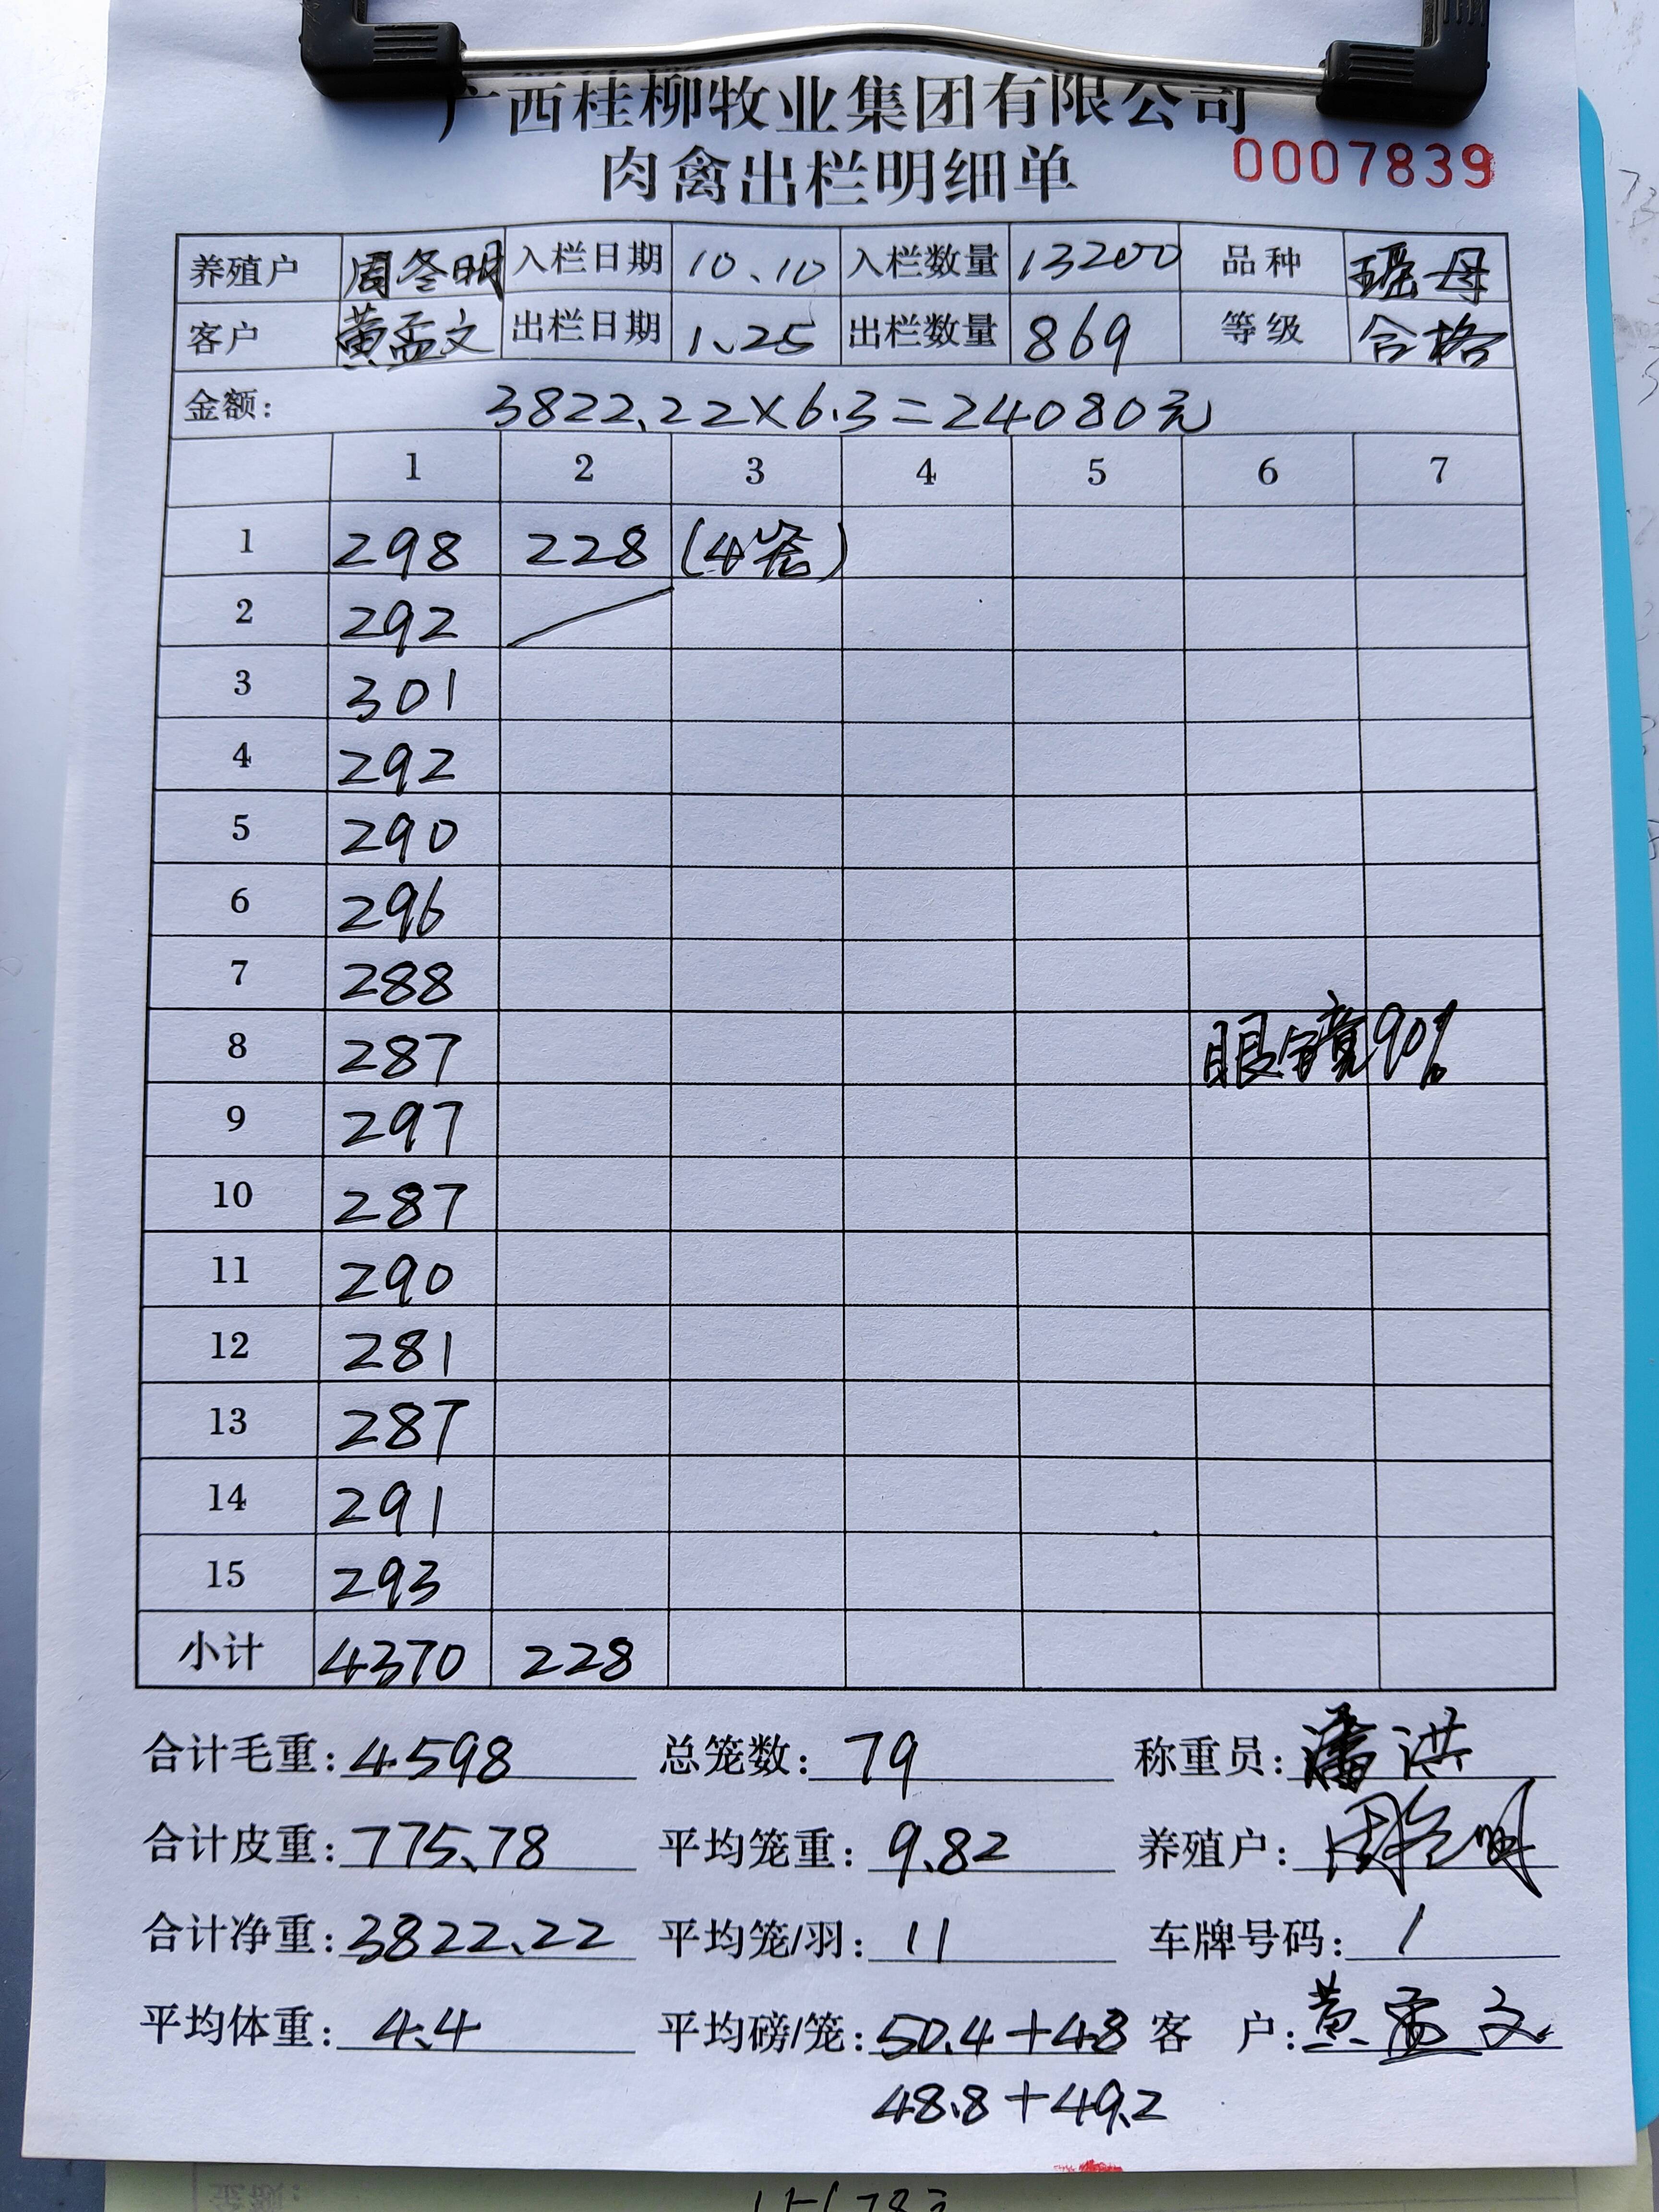 广西桂柳牧业集团有限公司
肉禽出栏明细单 0007839
养殖户 周冬明 入栏日期 10.10 入栏数量 13200 品种 瑶母
客户 黄孟文 出栏日期 1.25 出栏数量 869 等级 合格
金额: 3822.22×6.3=24080元
1 2 3 4 5 6 7
1 298 228 (4笼)
2 292
3 301
4 292
5 290
6 296
7 288
8 287 眼镜90%
9 297
10 287
11 290
12 281
13 287
14 291
15 293
小计 4370 228
合计毛重: 4598 总笼数: 79 称重员: 潘洪
合计皮重: 775.78 平均笼重: 9.82 养殖户: 周冬明
合计净重: 3822.22 平均笼/羽: 11 车牌号码: /
平均体重: 4.4 平均磅/笼: 50.4+48 客 户: 黄孟文
48.8+49.2
金额: